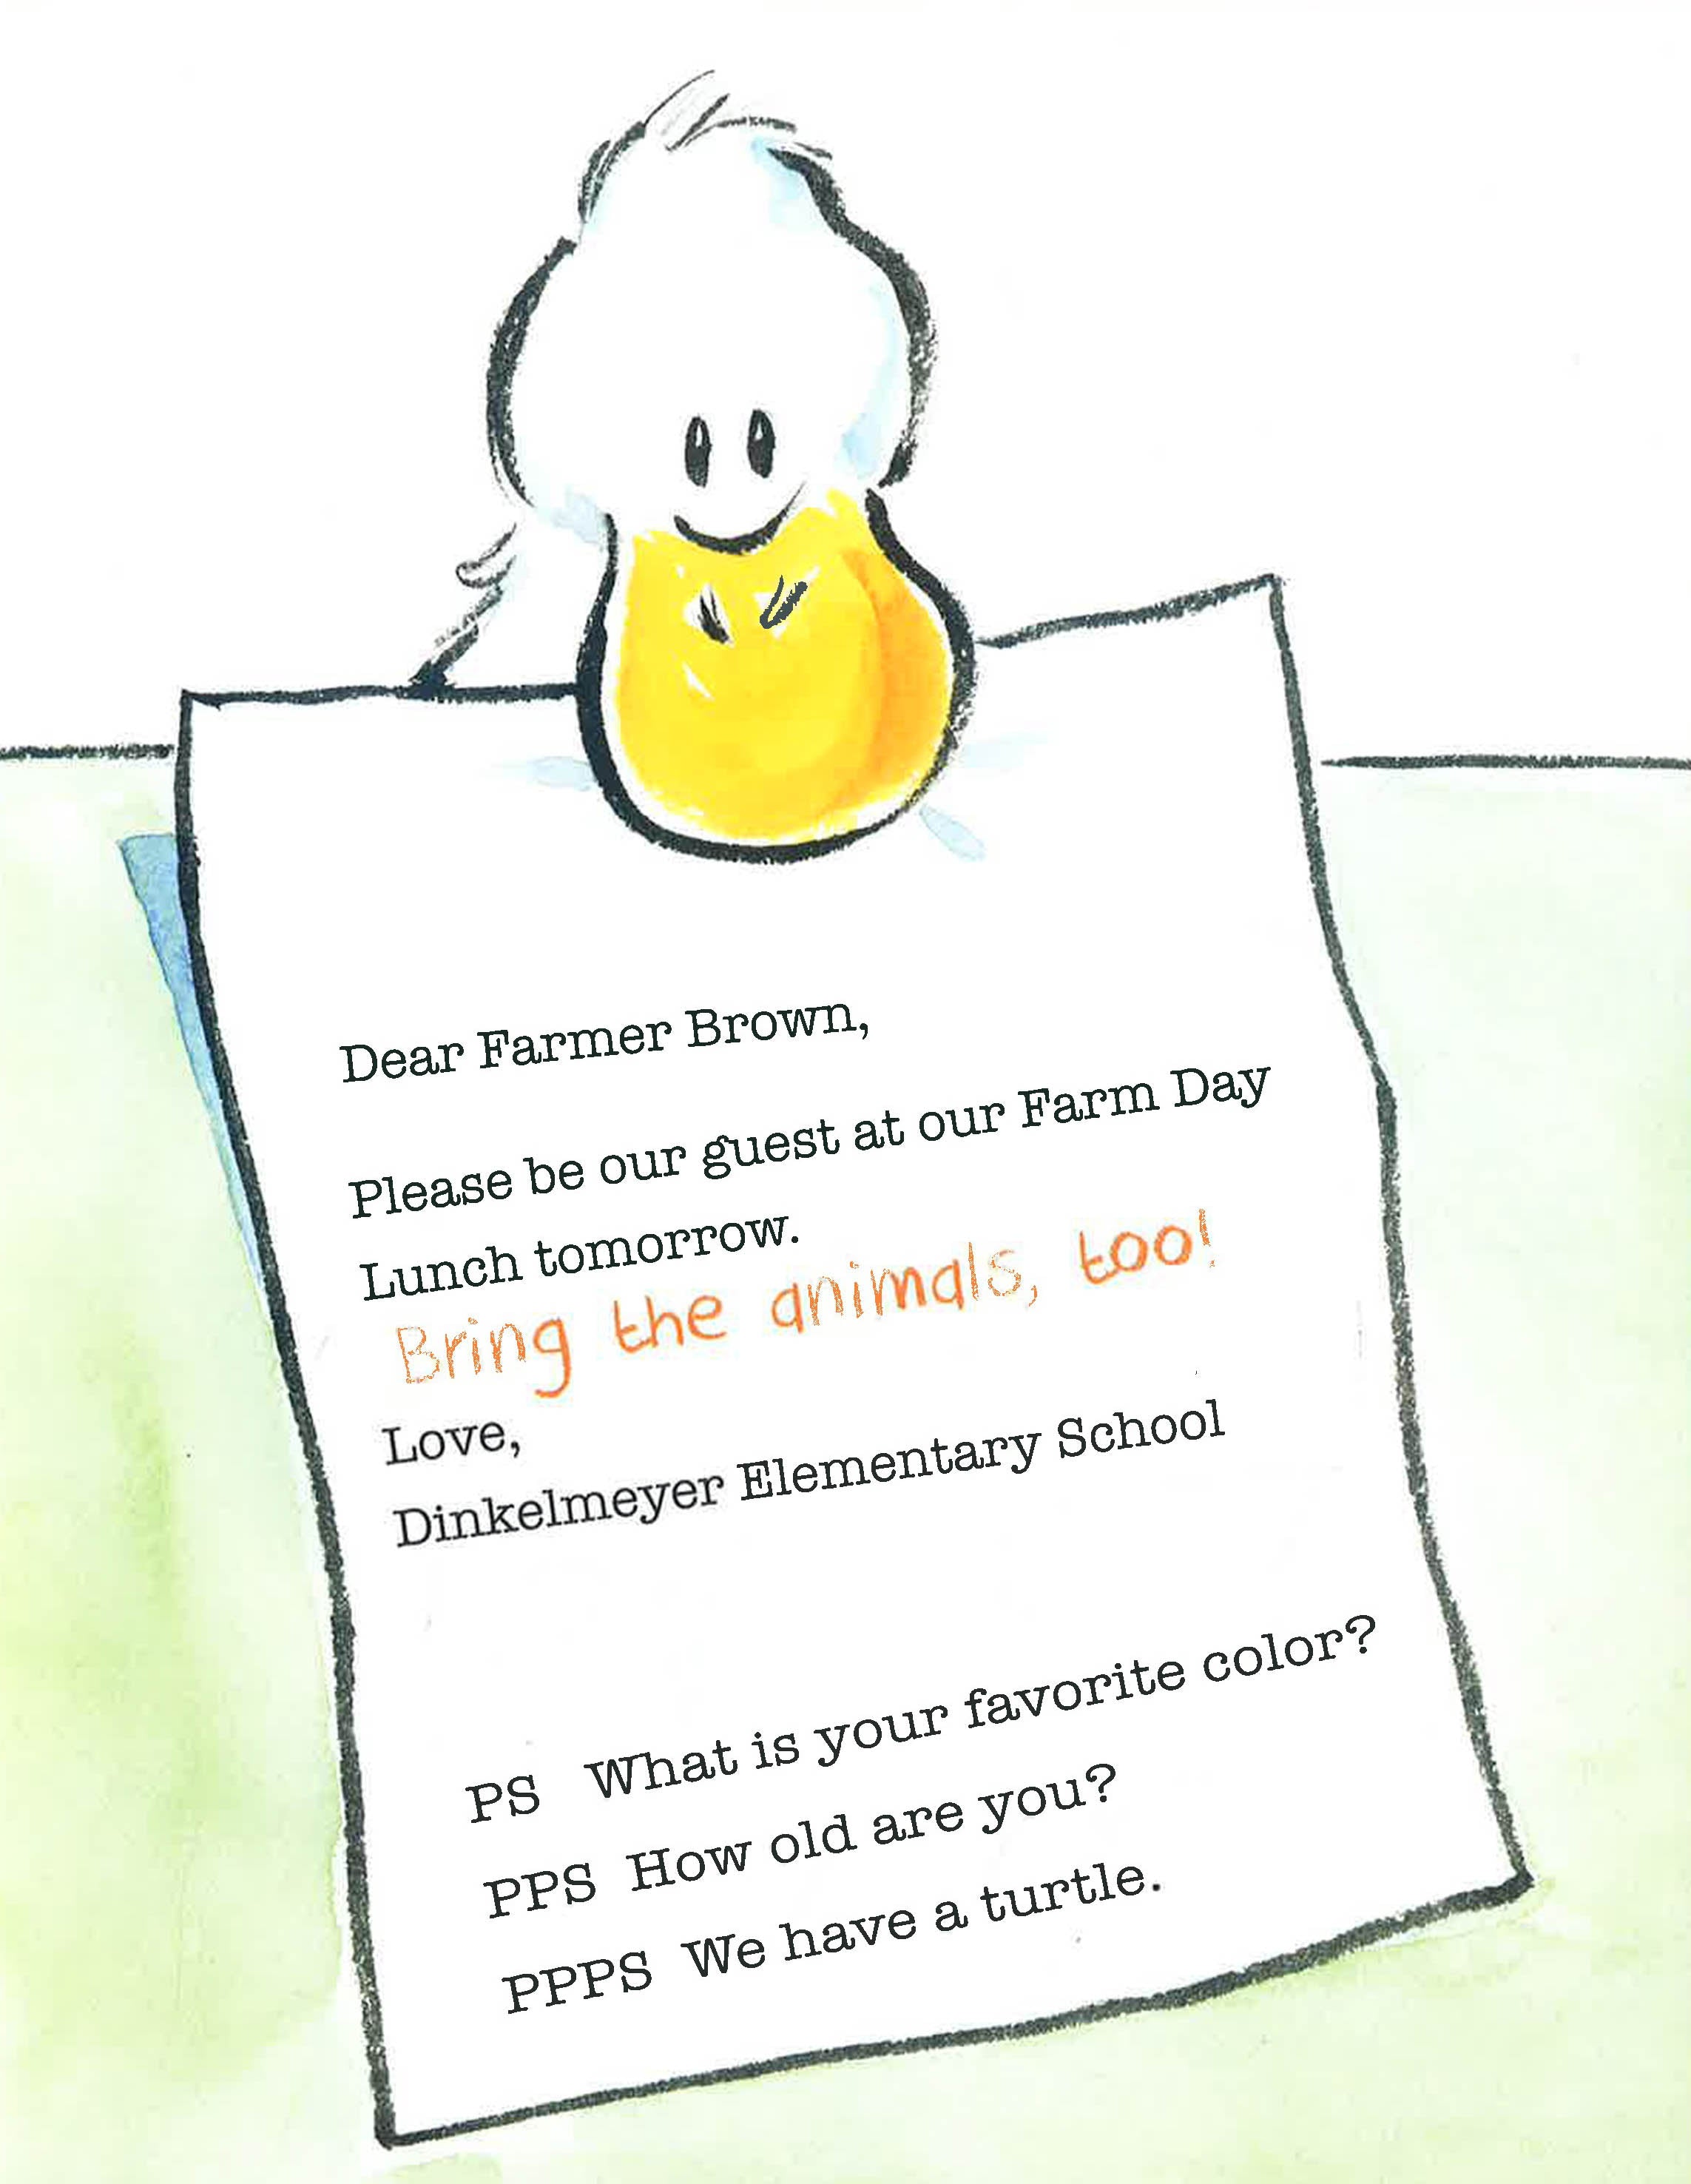 Dear Farmer Brown,
Please be our guest at our Farm Day
Lunch tomorrow.
Bring the animals, too!
Love,
Dinkelmeyer Elementary School
PS What is your favorite color?
PPS How old are you?
PPPS We have a turtle.